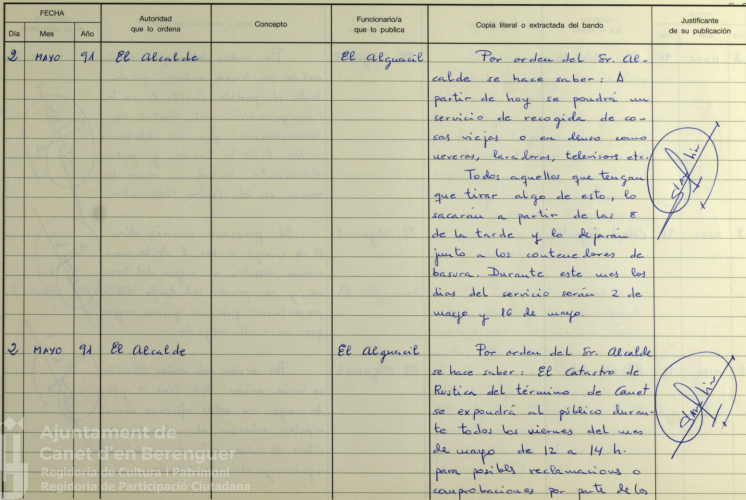 FECHA
Día Mes Año
Autoridad
que lo ordena
Concepto
Funcionario/a
que lo publica
Copia literal o extractada del bando
Justificante
de su publicación
2 MAYO 91 El Alcalde El Alguacil
Por orden del Sr. Al-
calde se hace saber: A
partir de hoy se pondrá un
servicio de recogida de co-
sas viejas o en desuso como
neveras, lavadoras, televisors etc.
Todos aquellos que tengan
que tirar algo de esto, lo
sacarán a partir de las 8
de la tarde y lo dejarán
junto a los contenedores de
basura. Durante este mes los
dias del servicio serán 2 de
mayo y 16 de mayo.
2 MAYO 91 El Alcalde El Alguacil
Por orden del Sr. Alcalde
se hace saber: El Catastro de
Rustica del término de Canet
se expondrá al público duran-
te todos los viernes del mes
de mayo de 12 a 14 h.
para posibles reclamacions o
comprobaciones por parte de los
Ajuntament de
Canet d'en Berenguer
Regidoria de Cultura i Patrimoni
Regidoria de Participació Ciutadana